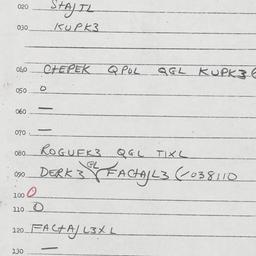 020 STAJTL
030 KUPK3
040 CTEPEK QPOL QGL KUPK3
050 O
060 —
070 —
080 ROGUFK3 QGL TIXL
GL
090 DERK3 FACTAJL3 (-038110
100 O
110 O
120 FACTAJL3XL
130 —